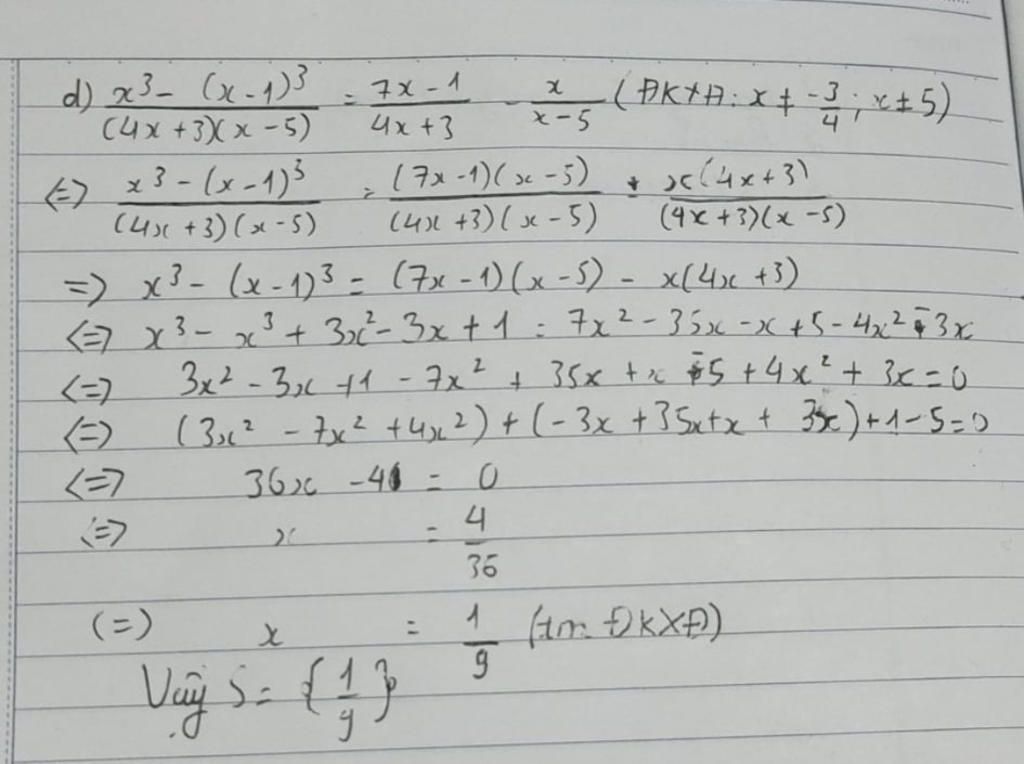 d) \frac{x^3 - (x-1)^3}{(4x+3)(x-5)} = \frac{7x-1}{4x+3} - \frac{x}{x-5} (ĐKXĐ: x ≠ \frac{-3}{4}; x ≠ 5)
<=> \frac{x^3 - (x-1)^3}{(4x+3)(x-5)} = \frac{(7x-1)(x-5)}{(4x+3)(x-5)} - \frac{x(4x+3)}{(4x+3)(x-5)}
=> x^3 - (x-1)^3 = (7x-1)(x-5) - x(4x+3)
<=> x^3 - x^3 + 3x^2 - 3x + 1 = 7x^2 - 35x - x + 5 - 4x^2 - 3x
<=> 3x^2 - 3x + 1 - 7x^2 + 35x + x - 5 + 4x^2 + 3x = 0
<=> (3x^2 - 7x^2 + 4x^2) + (-3x + 35x + x + 3x) + 1 - 5 = 0
<=> 36x - 4 = 0
<=> x = \frac{4}{36}
(=) x = \frac{1}{9} (tm ĐKXĐ)
Vậy S = {\frac{1}{9}}